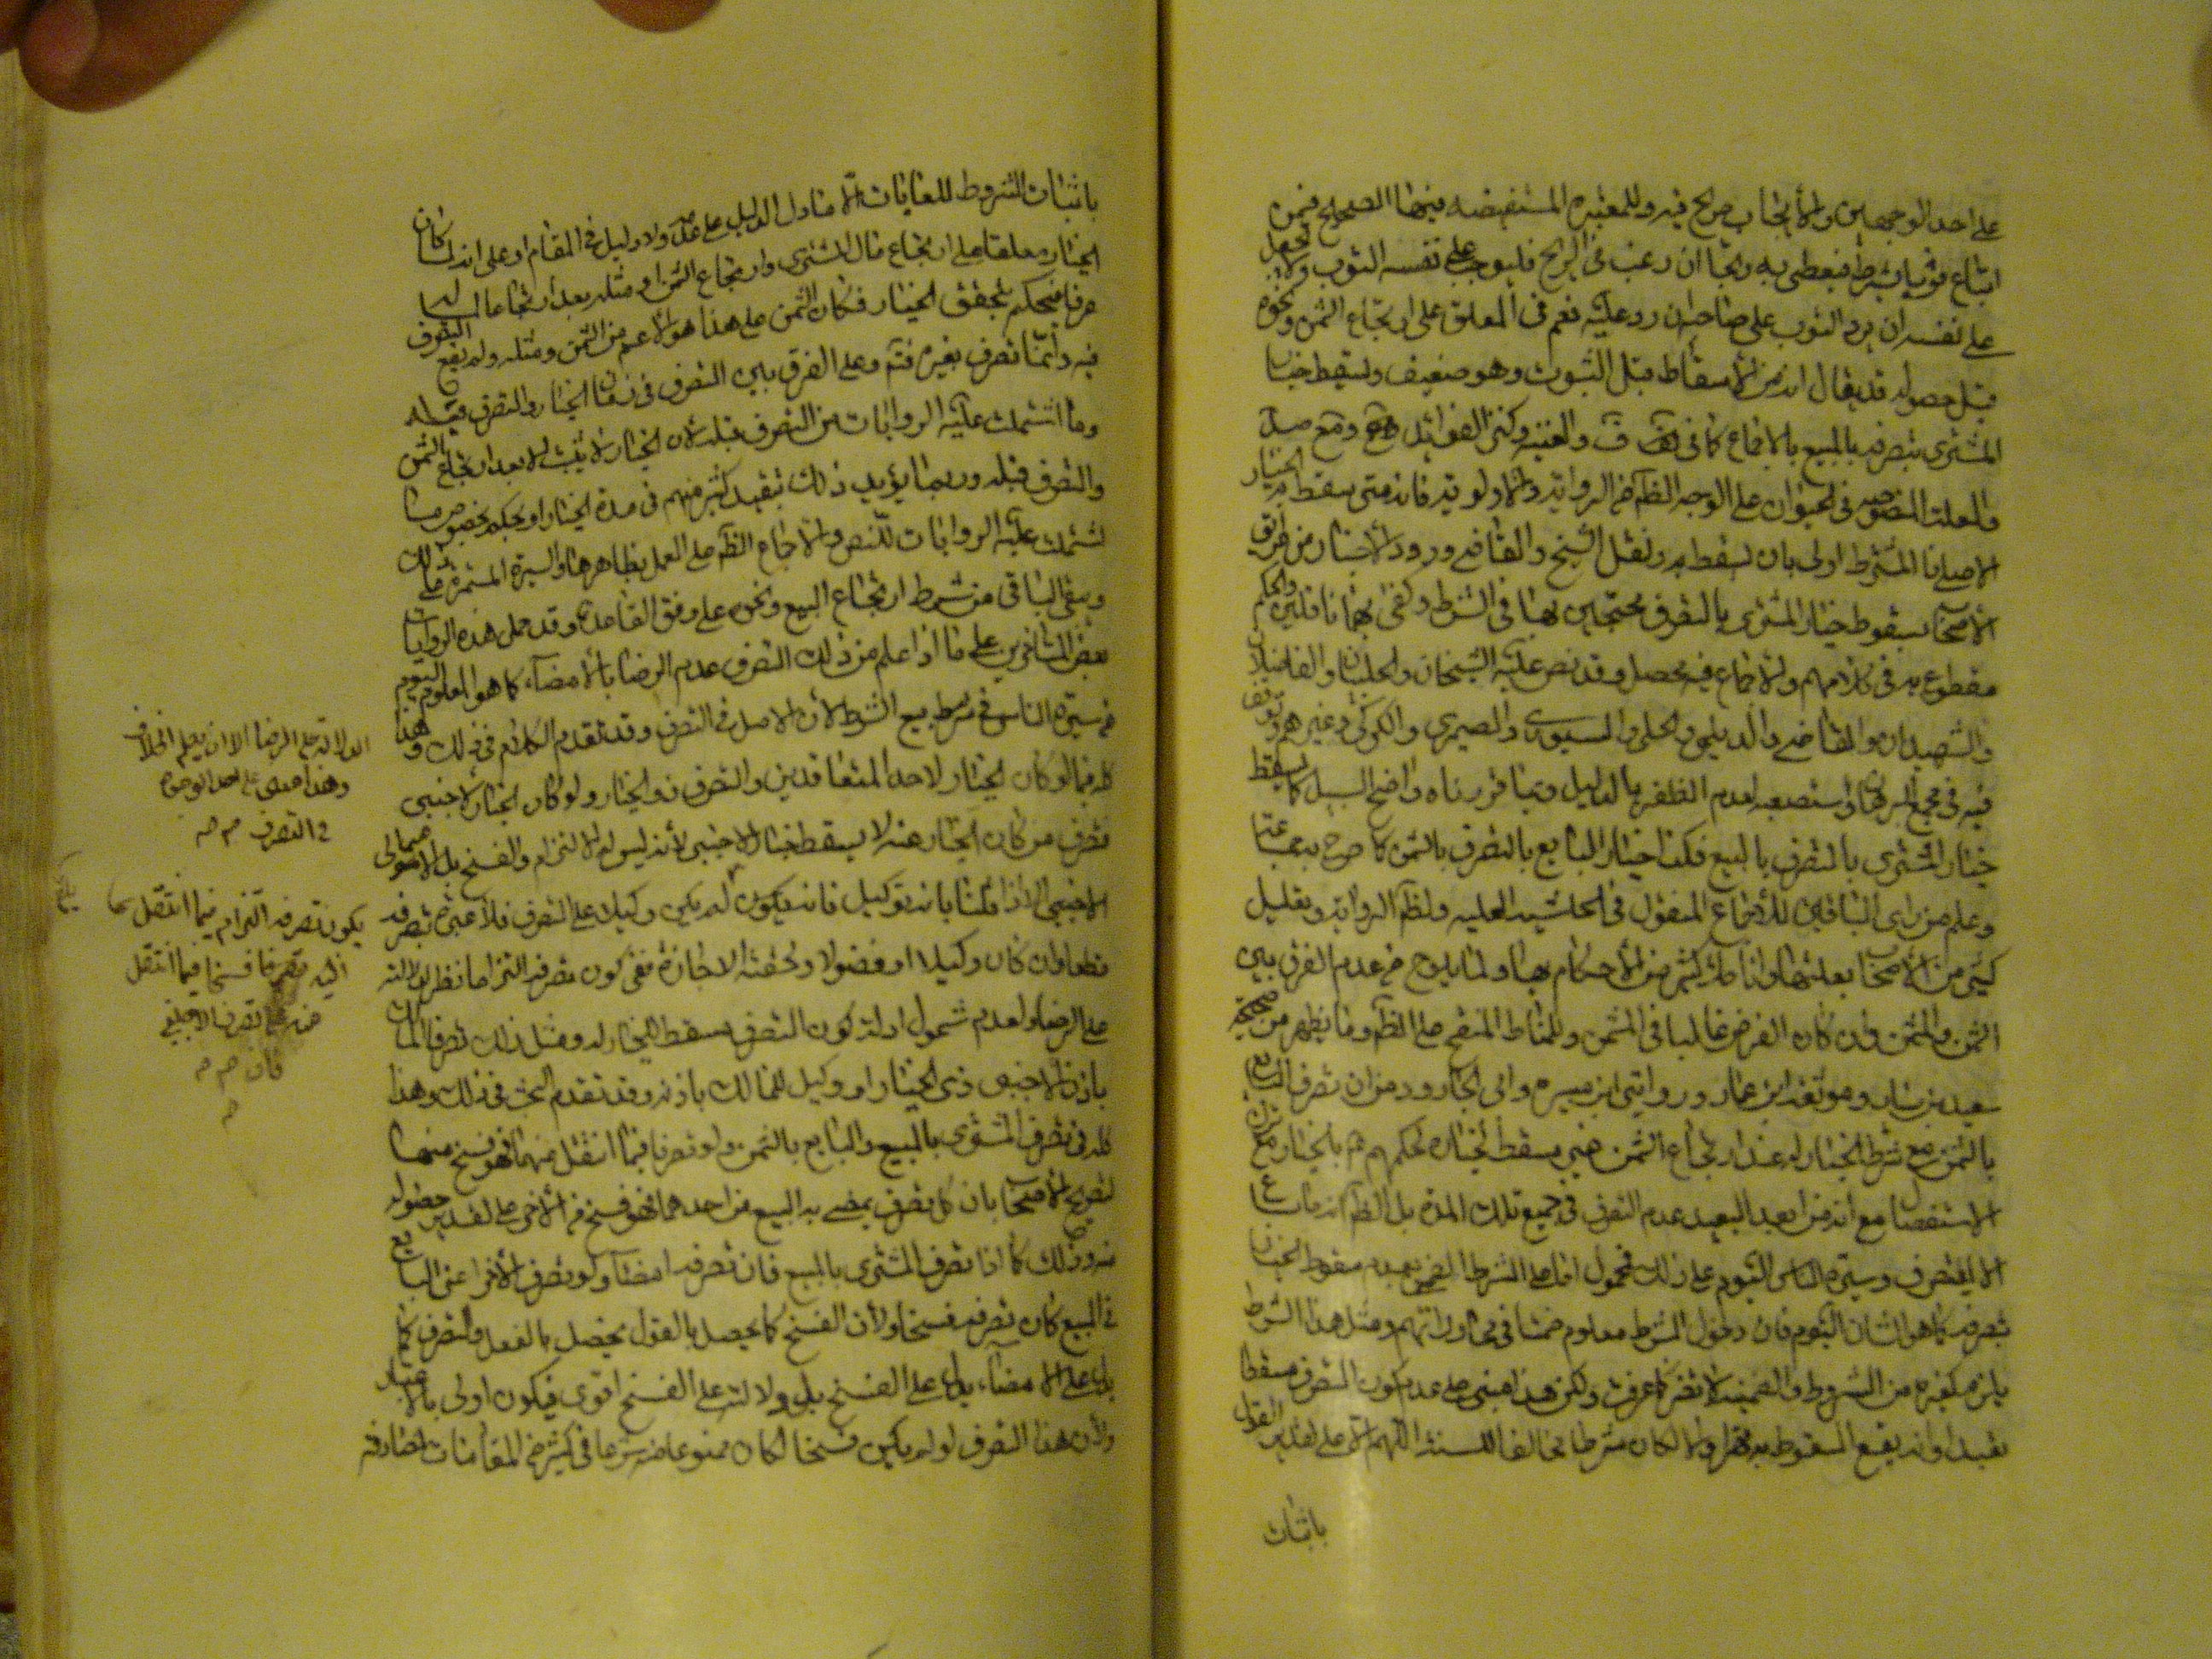 على احد الوجهين والايجاب صريح فيه وللمعتبره المستفيضه فيها الصحيح فيمن
ابتاع ثوبا بشرط فيعطى به ربحا ان رغب في الربح فليوجب على نفسه الثوب ولا يجعل
على نفسه ان يرد الثوب على صاحبه ان رد عليه نعم في المعلق على ارتجاع الثمن ونحوه
قبل حصوله قد يقال انه من الاسقاط قبل الثبوت وهو ضعيف ويسقط خيار
المشتري بتصرفه بالمبيع بالاجماع كما في والغنيه وكنز الفوائد
والعلت المنصوصه في الحيوان على الوجه الظاهر من الروايه والاولويه فانه متى سقط به الخيار
الاصلي فالمشترط اولى بان يسقط به ونقل الشيخ والقاضي ورود الاخبار من طرق
الاصحاب بسقوط خيار المشتري بالتصرف محتجين بها في الشرط وكفى بهما ناقلين والحكم
مقطوع به في كلامهم والاجماع فيه محصل وقد نص عليه الشيخان والحلبيان والفاضلان
والشهيدان والقاضي والديلمي والحلي والسيوري والصيمري والكركي وغيرهم وتوقف
فيه في مجمع البرهان واستصعبه لعدم الظفر بالدليل وبما قررناه واضح السبيل كما يسقط
خيار المشتري بالتصرف بالمبيع فكذا خيار البايع بالتصرف بالثمن كما صرح به جماعة
وعلم من راى الباقين للاجماع المنقول في العليه ولظاهر الروايه وتعليل
كثير من الاصحاب بعلتها واناطه كثير من الاحكام بها ولما يلوح من عدم الفرق بين
الثمن والمثمن وان كان الفرض غالبا في المثمن وللمناط المنقح على الظاهر وما يظهر من صحيحة
سعيد بن يسار وموثقه ابن عمار وروايتي ابن ميسره وابي الجارود من ان تصرف البايع
بالثمن مع شرط الخيار له عند ارتجاع الثمن غير مسقط لخياره لحكمهم بالخيار مع ترك
الاستفصال مع انه من ابعد البعيد عدم التصرف في جميع تلك المدة بل الظاهر انه ما باع
الا ليتصرف وسيرة الناس اليوم على ذلك فمحمول اما على الشرط الضمني بعدم سقوط الخيار
بتصرفه كما هو الشان اليوم فان دخول الشرط معلوم ضمنا في محاوراتهم ومثل هذا الشرط
يلزم كغيره من الشروط والضمنيه لا تضر كما عرفت ولكن هذا مبني على عدم كون التصرف مسقطا
تعبدا وانه يقع السقوط به قهرا والا لكان شرطا مخالفا للسنه اللهم الا على تقدير القول
باثبات
باثبات الشروط للغايات الا ما دل الدليل على عدمه ولا دليل في المقام او على انه لما كان
الخيار معلقا على ارتجاع مال المشتري وارتجاع الثمن او مثله بعد ارتجاعا له
عرفا فيحكم بتحقق الخيار فكان الثمن على هذا هو الاعم من الثمن ومثله ولم يقع التصرف
فيه وانما تصرف بغيره فتم وعلى الفرق بين التصرف في زمان الخيار والتصرف قبله
وما اشتملت عليه الروايات من التصرف قبله لان الخيار لا يثبت الا بعد ارتجاع الثمن
والتصرف قبله وربما يؤيد ذلك تقييد كثير منهم في مدة الخيار او يحكم بخصوص ما
اشتملت عليه الروايات للنص والاجماع الظاهر على العمل بظاهرها والسيرة المستمرة على ذلك
ويبقى الباقي من شرط ارتجاع المبيع ونحوه على وفق القاعدة وقد حمل هذه الروايات
بعض المتاخرين على ما اذا علم من ذلك التصرف عدم الرضا بالامضاء كما هو المعلوم اليوم
من سيرة الناس في شرط بيع الشرط لان الاصل في التصرف وقد تقدم الكلام في ذلك وهذا
كله فيما لو كان الخيار لاحد المتعاقدين والتصرف ذو الخيار ولو كان الخيار لاجنبي
تصرف من كان الخيار عنه لا يسقط خيار الاجنبي لانه ليس له الالتزام والفسخ بل الامر الى
الاجنبي الا اذا قلنا بانه توكيل فانه يكون لم يكن وكيلا على التصرف فلا عبره بتصرفه
قطعا وان كان وكيلا او فضولا ولحقته الاجازة ففي كون تصرفه التزاما نظر لدلالته
على الرضا ولعدم شمول ادلة كون التصرف مسقط للخيار له ومثل ذلك تصرف المالك
باذن الاجنبي ذي الخيار او وكيل للمالك باذنه وقد تقدم البحث في ذلك وهذا
كله في تصرف المشتري بالمبيع والبايع بالثمن ولو تصرفا فيما انتقل عنهما فهو فسخ منهما
لتصريح الاصحاب بان كل تصرف يمضي به البيع من احدهما فهو فسخ من الاخر على تقدير حصوله
منه وذلك كما اذا تصرف المشتري بالمبيع فان تصرفه امضاء ولو تصرف الاخر اعني البايع
في المبيع كان تصرفه فسخا ولان الفسخ كما يحصل بالقول يحصل بالفعل والتصرف كما
يدل على الامضاء يدل على الفسخ بل دلالته على الفسخ اقوى فيكون اولى بالاعتبار
ولان هذا التصرف لو لم يكن فسخا لكان ممنوعا منه شرعا في كثير من المقامات لمصادفة
الدلالة على الرضا الا ان يعلم الخلاف
وهذا مبني على احد الوجوه
في التصرف
يكون تصرفه التزام فيما انتقل
اليه وتصرفا فسخا فيما انتقل
عنه تصرف الاجنبي